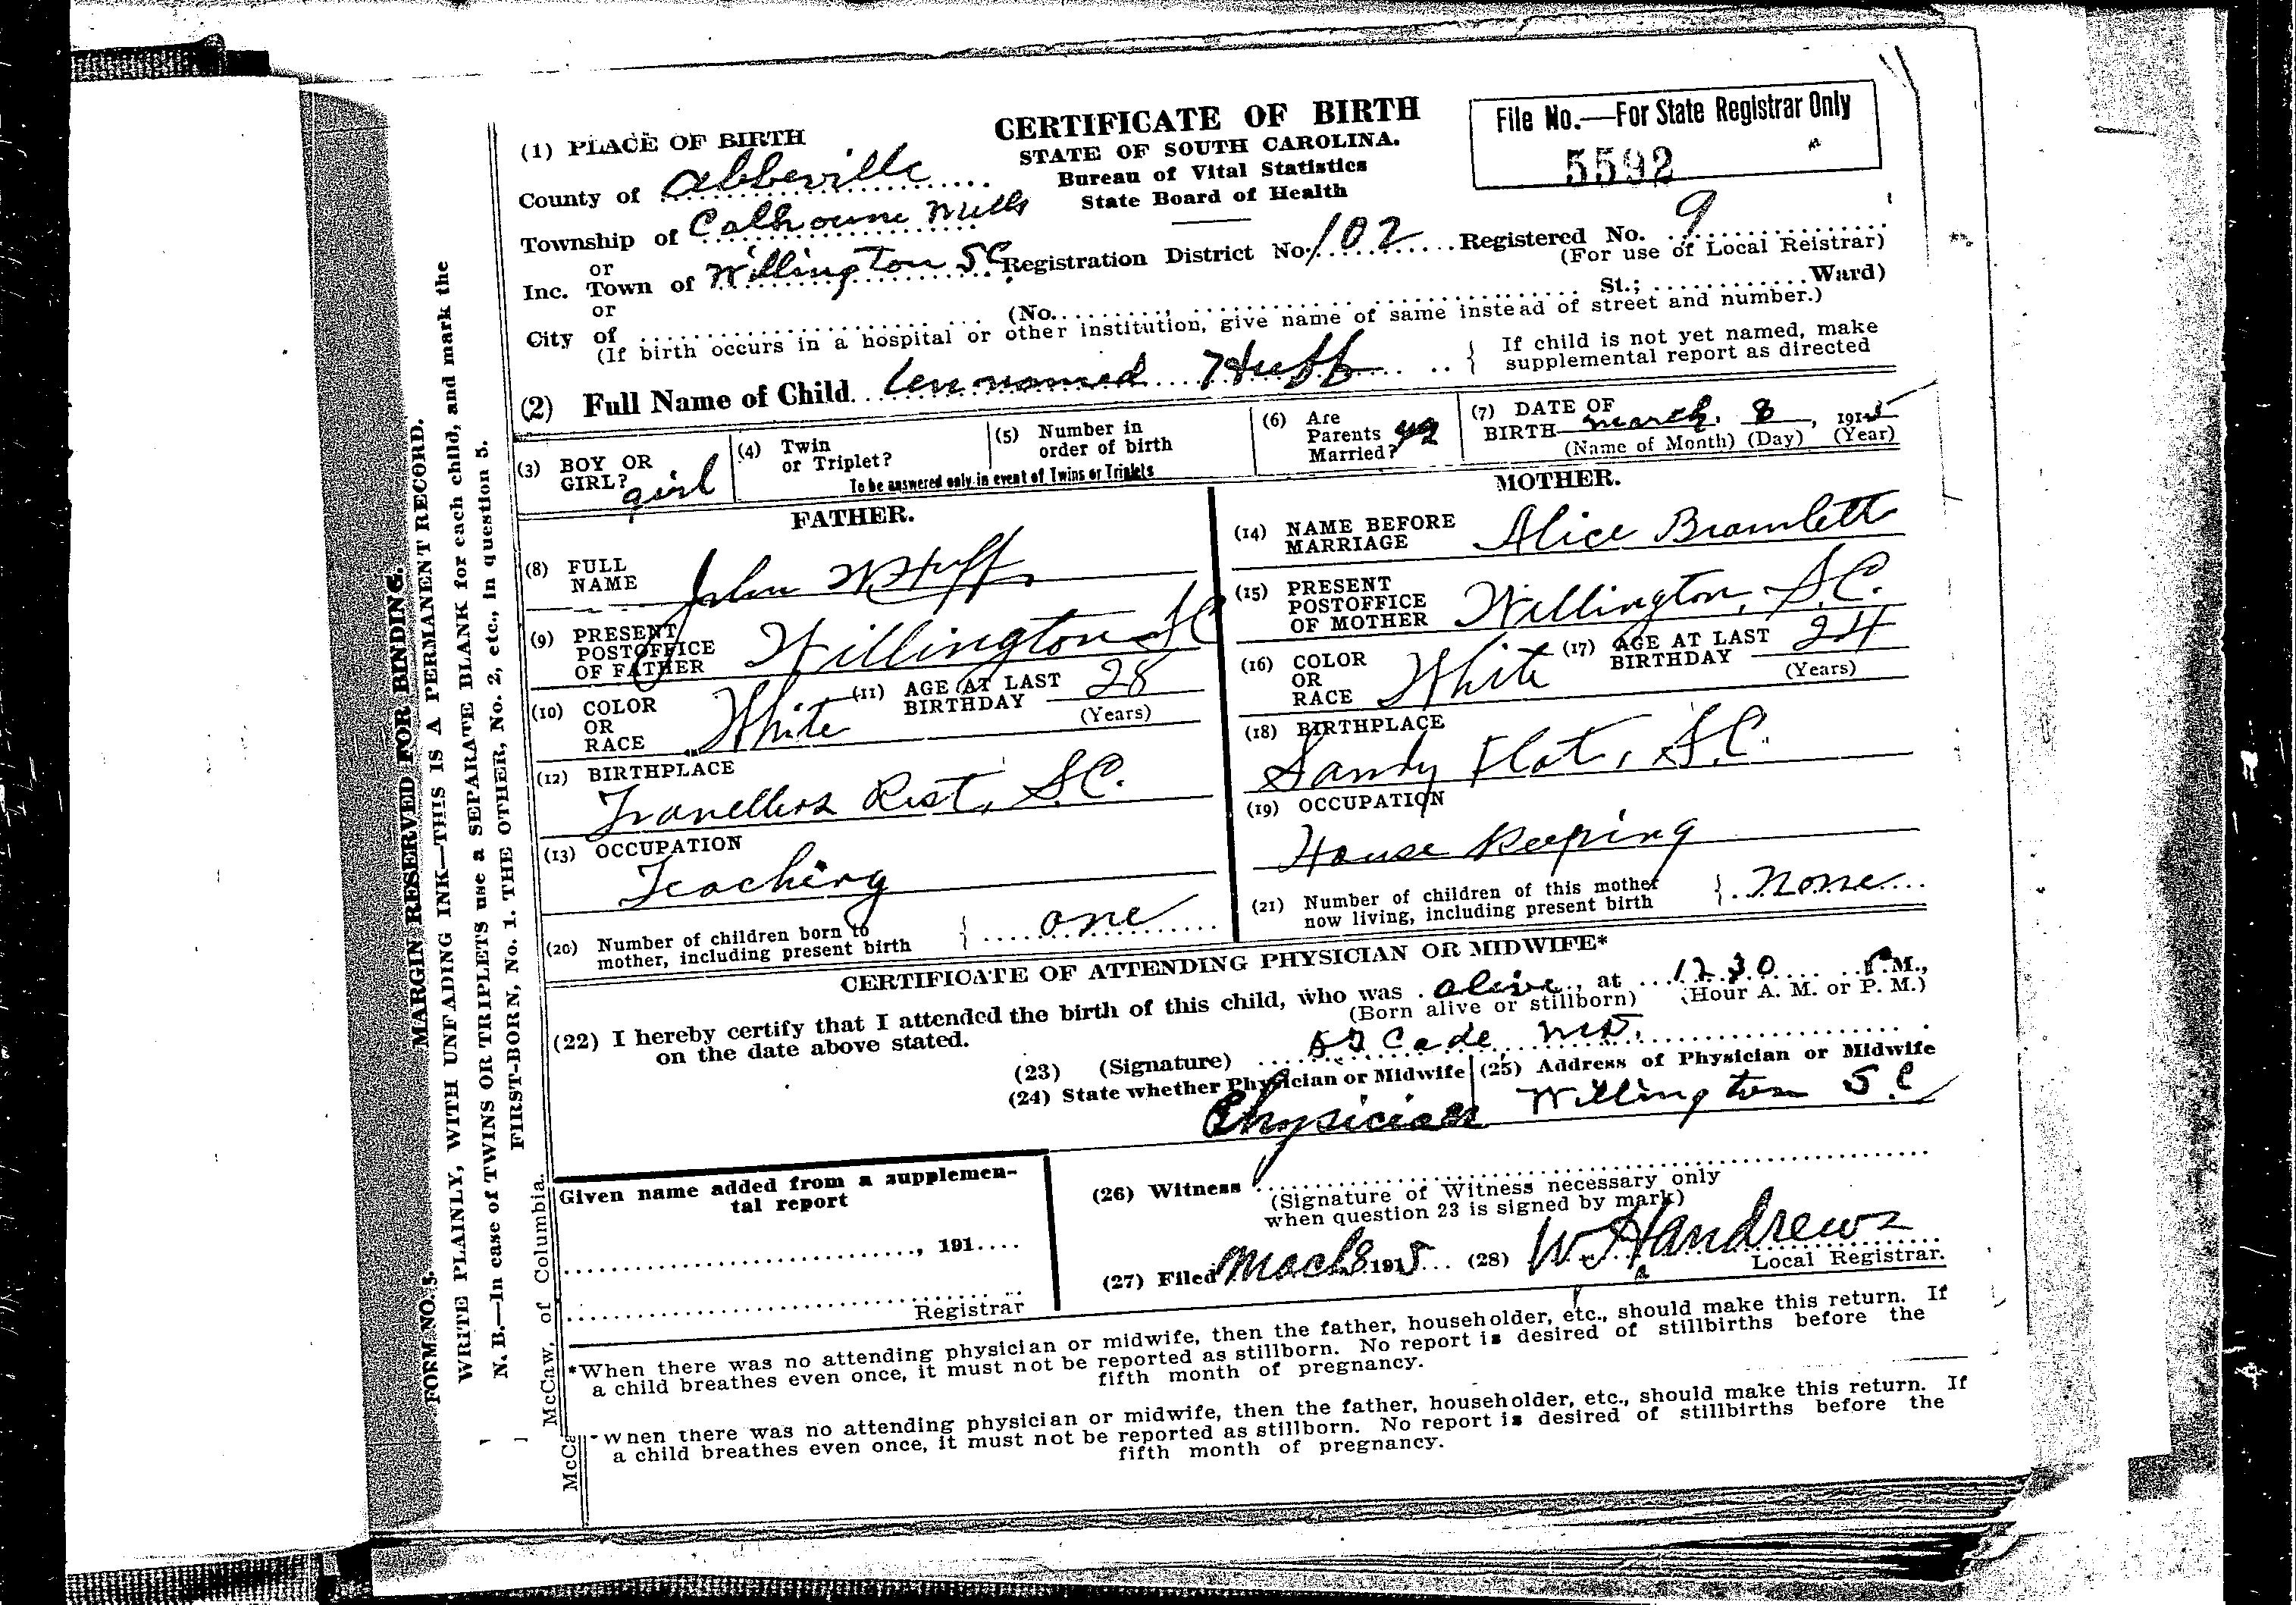 CERTIFICATE OF BIRTH
STATE OF SOUTH CAROLINA.
Bureau of Vital Statistics
State Board of Health
File No.—For State Registrar Only
5592
(1) PLACE OF BIRTH
County of Abbeville
Township of Calhoune Mills
or
Inc. Town of Willington SC Registration District No. 102 Registered No. 9
(For use of Local Reistrar)
or
City of (No. St.; Ward)
(If birth occurs in a hospital or other institution, give name of same instead of street and number.)
(2) Full Name of Child unnamed Huff { If child is not yet named, make
supplemental report as directed
(3) BOY OR
GIRL? girl
(4) Twin
or Triplet?
(5) Number in
order of birth
To be answered only in event of Twins or Triplets
(6) Are
Parents
Married?
(7) DATE OF
BIRTH March 8, 1915
(Name of Month) (Day) (Year)
FATHER.
(8) FULL
NAME John W Huff
(9) PRESENT
POSTOFFICE
OF FATHER Willington SC
(10) COLOR
OR
RACE White
(11) AGE AT LAST
BIRTHDAY 28
(Years)
(12) BIRTHPLACE
Travellers Rest, S.C.
(13) OCCUPATION
Teaching
(20) Number of children born to
mother, including present birth } one
MOTHER.
(14) NAME BEFORE
MARRIAGE Alice Bramlett
(15) PRESENT
POSTOFFICE
OF MOTHER Willington, S.C.
(16) COLOR
OR
RACE White
(17) AGE AT LAST
BIRTHDAY 24
(Years)
(18) BIRTHPLACE
Sandy Flat, S.C.
(19) OCCUPATION
House Keeping
(21) Number of children of this mother
now living, including present birth } none
CERTIFICATE OF ATTENDING PHYSICIAN OR MIDWIFE*
(22) I hereby certify that I attended the birth of this child, who was alive, at 12 30 P.M.,
(Born alive or stillborn) (Hour A. M. or P. M.)
on the date above stated.
(23) (Signature) Cade, MD.
(24) State whether Physician or Midwife
Physician
(25) Address of Physician or Midwife
Willington S C
Given name added from a supplemen-
tal report
, 191....
Registrar
(26) Witness
(Signature of Witness necessary only
when question 23 is signed by mark)
(27) Filed Mach 8 1915 (28) W. H Andrews
Local Registrar.
*When there was no attending physician or midwife, then the father, householder, etc., should make this return. If
a child breathes even once, it must not be reported as stillborn. No report is desired of stillbirths before the
fifth month of pregnancy.
*When there was no attending physician or midwife, then the father, householder, etc., should make this return. If
a child breathes even once, it must not be reported as stillborn. No report is desired of stillbirths before the
fifth month of pregnancy.
MARGIN RESERVED FOR BINDING.
WRITE PLAINLY, WITH UNFADING INK—THIS IS A PERMANENT RECORD.
N. B.—In case of TWINS OR TRIPLETS use a SEPARATE BLANK for each child, and mark the
FIRST-BORN, No. 1. THE OTHER, No. 2, etc., in question 5.
FORM NO. 5.
McCaw, of Columbia.
McCa